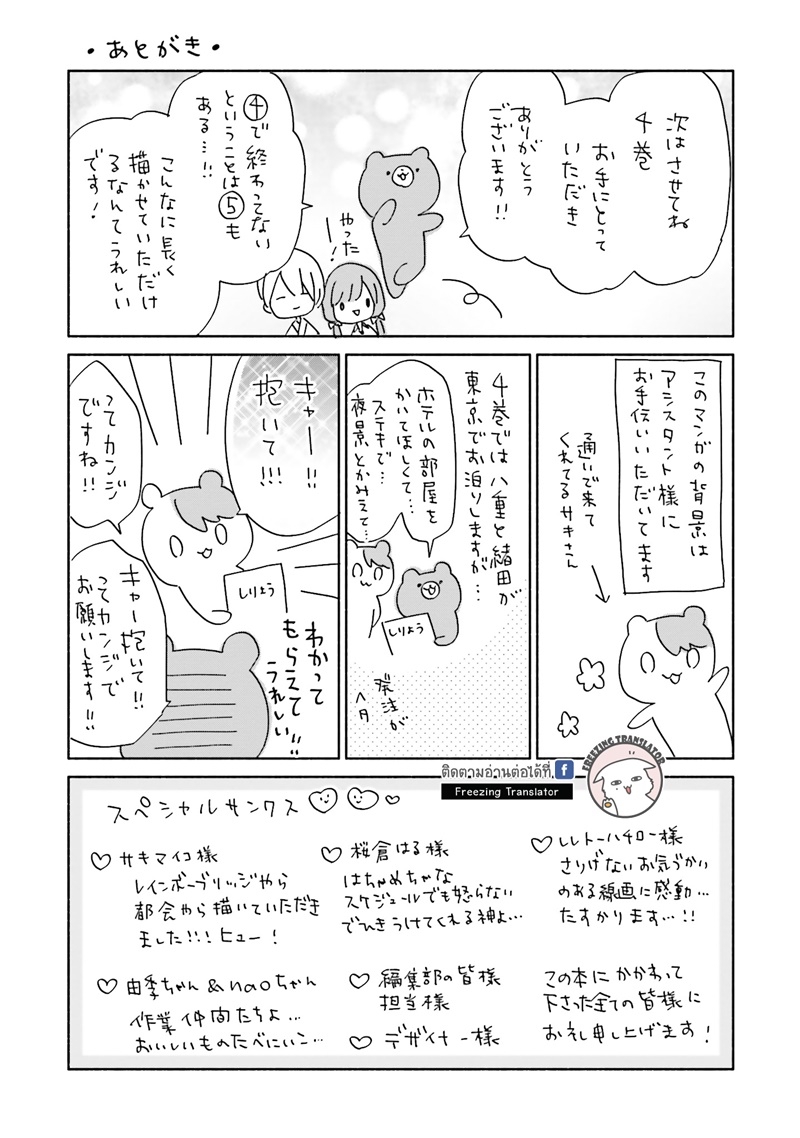 ・あとがき・
次はさせてね
４巻
お手にとって
いただき
ありがとう
ございます!!
やった
ー!
④で終わってない
ということは⑤も
ある…!!
こんなに長く
描かせていただけ
るなんてうれしい
です!
このマンガの背景は
アシスタント様に
お手伝いいただいてます
通いで来て
くれてるサキさん
４巻では八重と緒田が
東京でお泊りしますが…
ホテルの部屋を
かいてほしくて…
ステキで…
夜景とかみえて…
しりょう
発注が
八月
キャー!!
抱いて!!!
ってカンジ
ですね!!
しりょう
わかって
もらえて
うれしい
キャー抱いて!!
ってカンジで
お願いします!!
ติดตามอ่านต่อได้ที่ f
Freezing Translator
FREEZING TRANSLATOR
スペシャルサンクス
♡サキマイコ様
レインボーブリッジやら
都会やら描いていただき
ました!!!ヒュー!
♡桜倉はる様
はちゃめちゃな
スケジュールでも怒らない
でひきうけてくれる神よ…
♡レレトーハチロー様
さりげないお気づかい
のある線画に感動…
たすかります…!!
♡由季ちゃん&naoちゃん
作業仲間たちよ…
おいしいものたべにいこ…
♡編集部の皆様
担当様
♡デザイナー様
この本にかかわって
下さった全ての皆様に
お礼申し上げます!